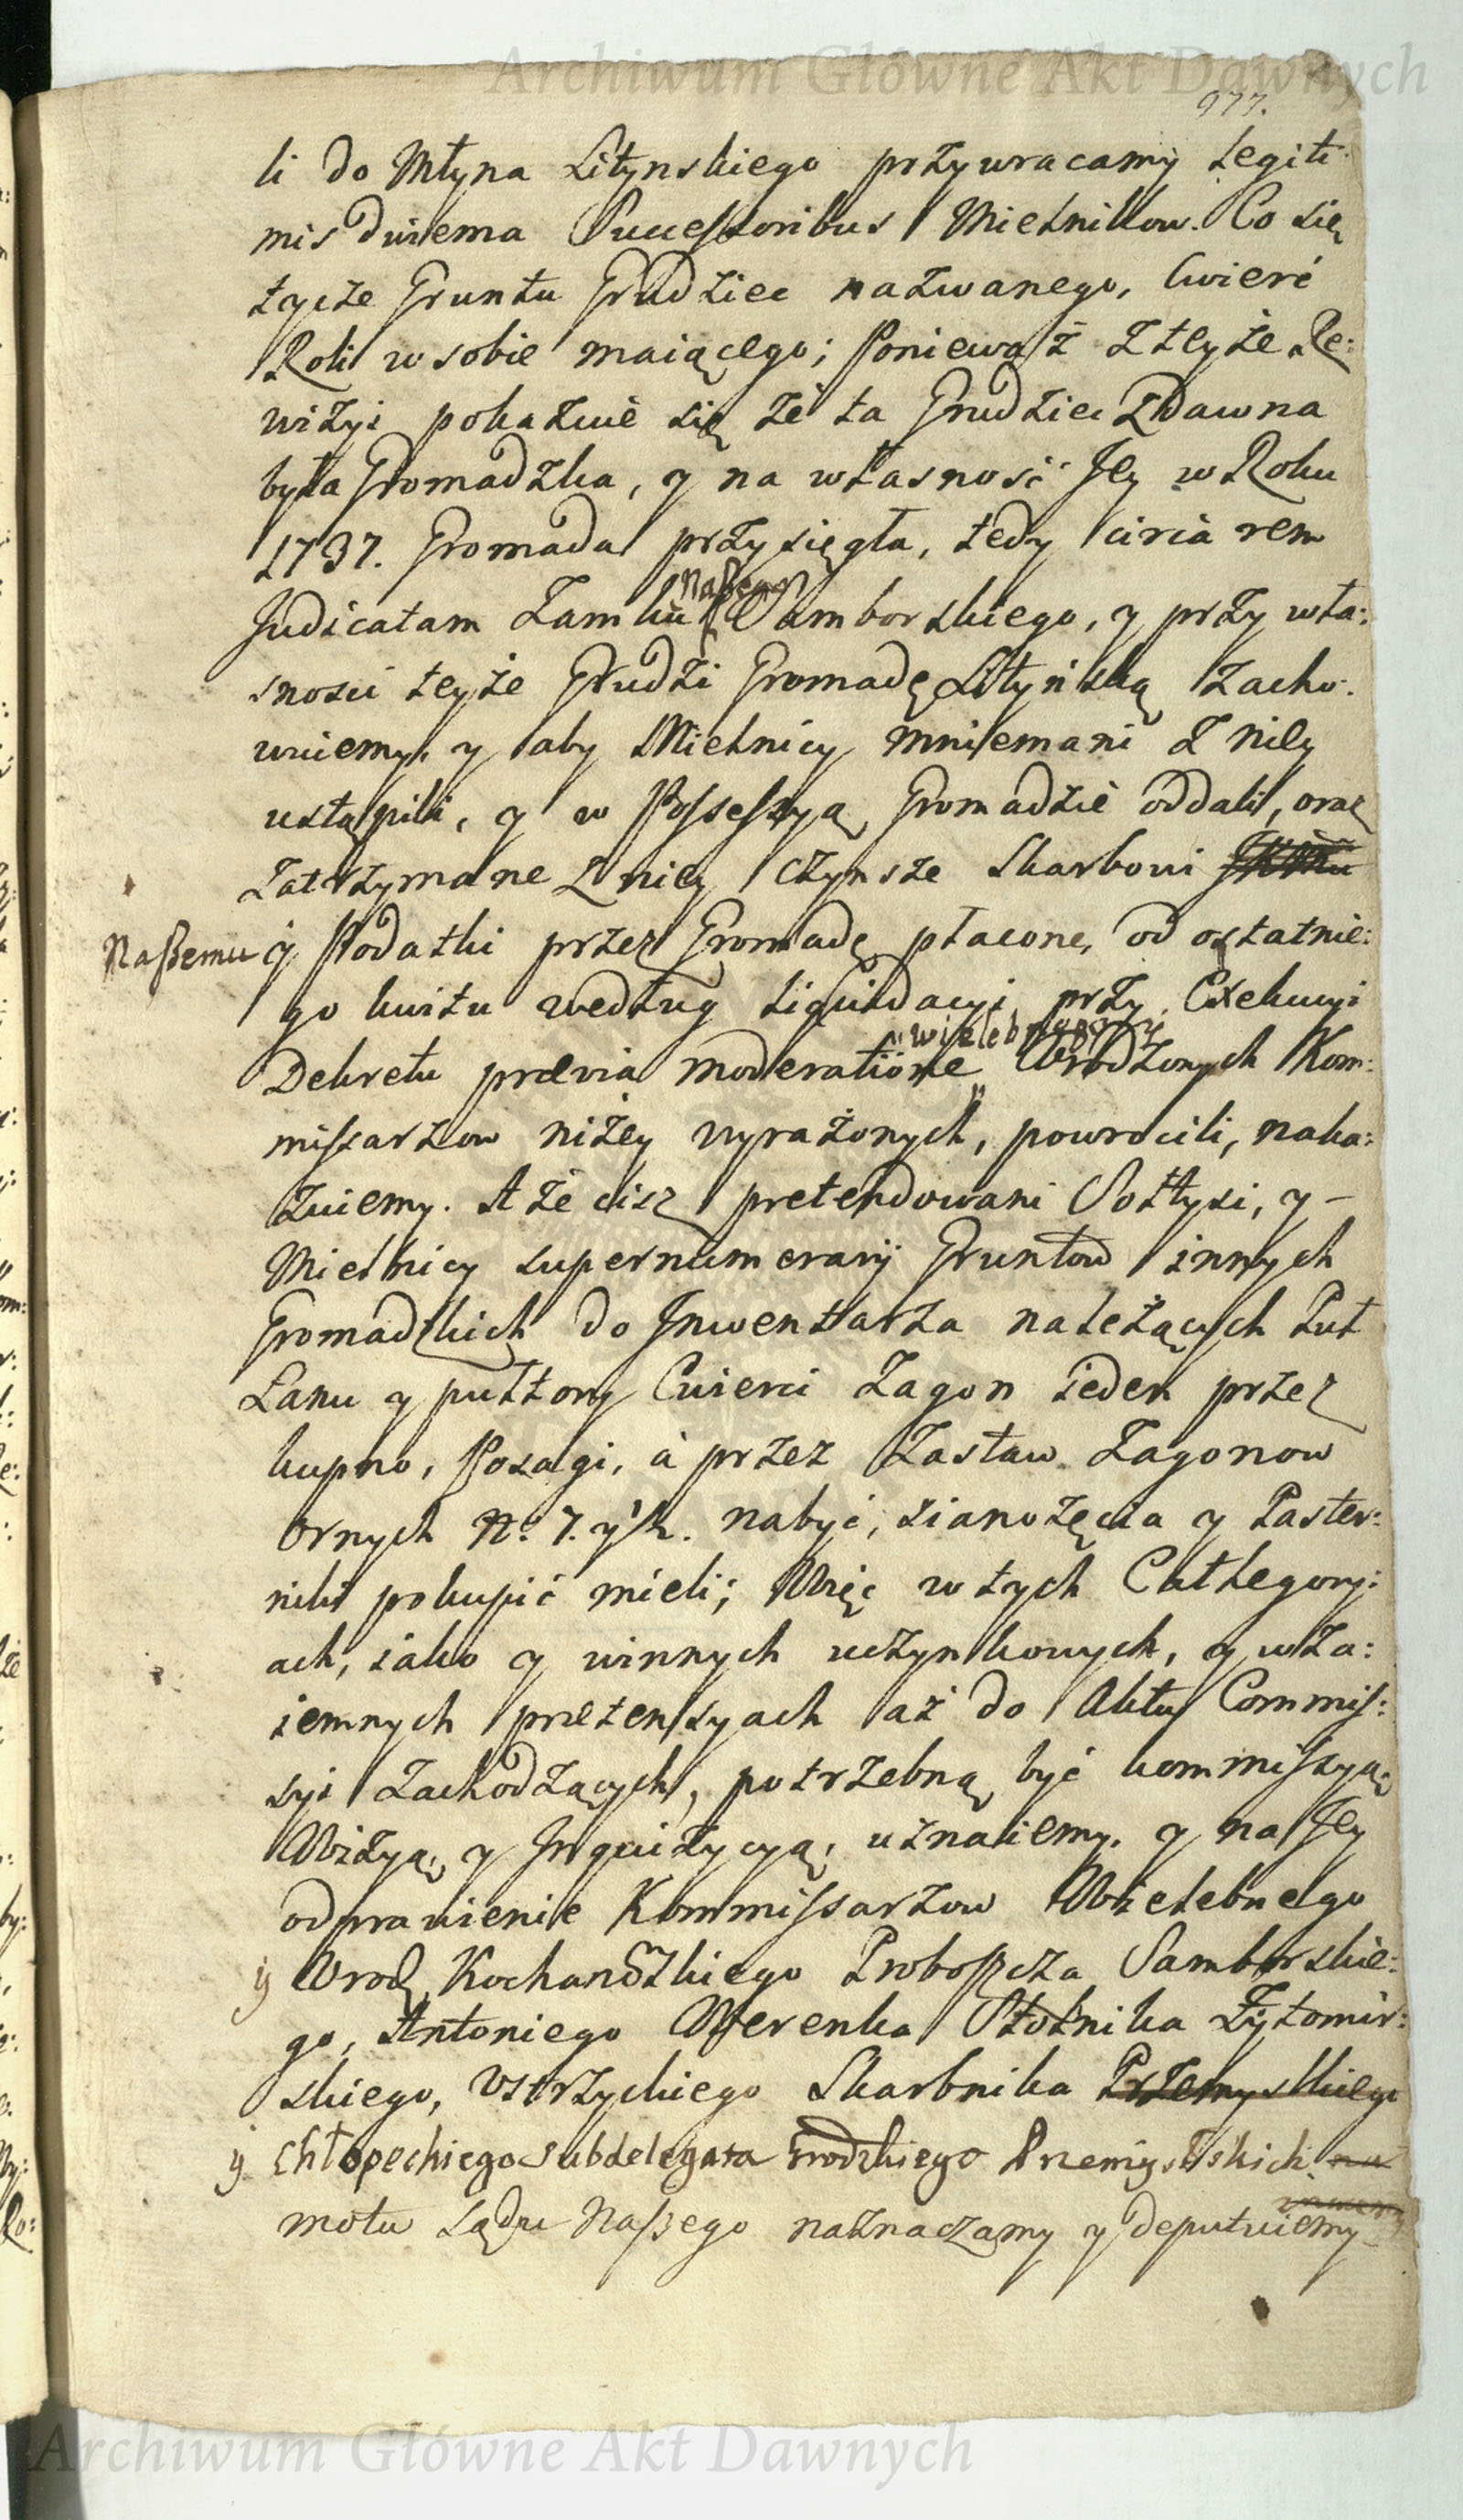 Archiwum Główne Akt Dawnych
977.
li do Młyna Lityńskiego przywracamy Legiti:
mis dwiema Successoribus Mielnikow. Co się
tycze Gruntu Grudziec nazwanego, Cwierć
Roli w sobie maiącego; Ponieważ z teyże Re:
wizyi pokazuie się że ta Grudziec Zdawna
była Gromadzka, y na własność Jey w Roku
1737. Gromada przysięgła, tedy circa rem
Judicatam Zamku Naßego Samborskiego, y przy wła:
sności teyże Grudzi Gromadę Lityńską zacho:
wuiemy, y aby Mielnicy mniemani z niey
ustąpili, y w Possessyą Gromadzie oddali, oraz
zatrzymane z niey czynsze Skarbowi
Naßemu y Podatki przez Gromadę płacone, od ostatnie:
go kwitu według Liquidacyi przy Exekucyi
Dekretu prævia moderatione Wielebnego y Urodzonych Kom:
missarzow niżey wyrażonych, powrocili, naka:
zuiemy. A że cisz prætendowani Sołtysi, y –
Mielnicy supernumerarij Gruntow innych
Gromadzkich do Inwentarza należących Puł
Łanu y pułtory Cwierci Zagon ieden przez
kupno, Posagi, à przez Zastaw Zagonow
Ornych No 7. y ½. nabyć, sianożęcia y Paster:
niki pokupić mieli; Więc w tych Cathegory:
ach, iako y winnych uczynkowych, y wza:
iemnych prætensyach aż do Aktu Commis:
syi Zachodzących, potrzebną być kommissyą
Wizyą, y Inquizycyą, uznaiemy. y na Jey
odprawienie Kommissarzow Wielebnego
y Urod. Kochanowskiego Proboszcza Samborskie:
go, Antoniego Werenka Stolnika Żytomir:
skiego, Ustrzyckiego Skarbnika Przemyskiego
y Chłopeckiego Subdelegata Grodzkiego Przemyslskich. na
motu Sądu Naßego naznaczamy y deputuiemy
Archiwum Główne Akt Dawnych